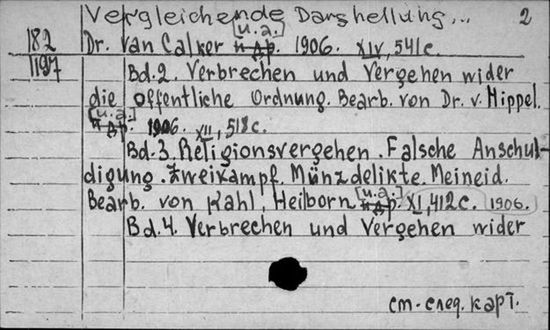 Vergleichende Darshellung... 2
182 Dr. Van Calker [u.a.] и др. 1906. XIV, 541c.
1197 Bd.2. Verbrechen und Vergehen wider
die offentliche Ordnung. Bearb. von Dr. v. Hippel.
[u.a.] и др. 1906. XII, 518c.
Bd.3. Religionsvergehen. Falsche Anschul-
digung. Zweikampf. Münzdelikte. Meineid.
Bearb. von Kahl, Heilborn [u.a.] и др. XI, 412c. 1906.
Bd.4. Verbrechen und Vergehen wider
см-след. карт.